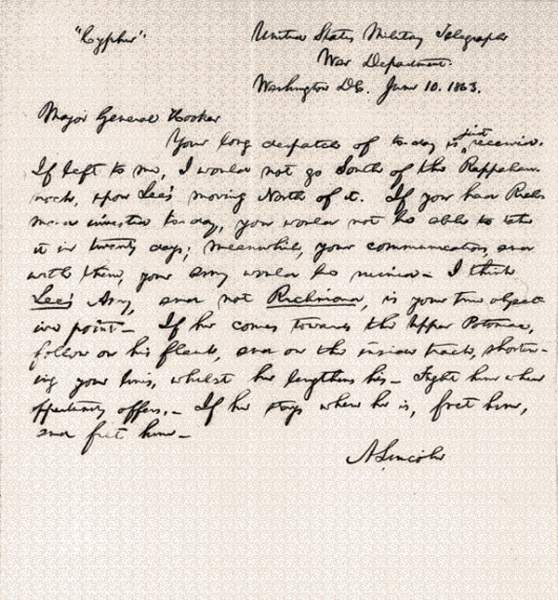 "Cypher"
United States Military Telegraph
War Department.
Washington DC. June 10. 1863.
Major General Hooker
Your long despatch of to-day is just received.
If left to me, I would not go South of the Rappahan-
nock, upon Lee's moving North of it. If you had Rich-
mond invested to-day, you would not be able to take
it in twenty days; meanwhile, your communications, and
with them, your army would be ruined— I think
Lee's Army, and not Richmond, is your true object-
ive point— If he comes towards the Upper Potomac,
follow on his flank, and on the inside track, shorten-
ing your lines, whilst he lengthens his— Fight him when
oppertunity offers.— If he stays where he is, fret him,
and fret him—
A Lincoln